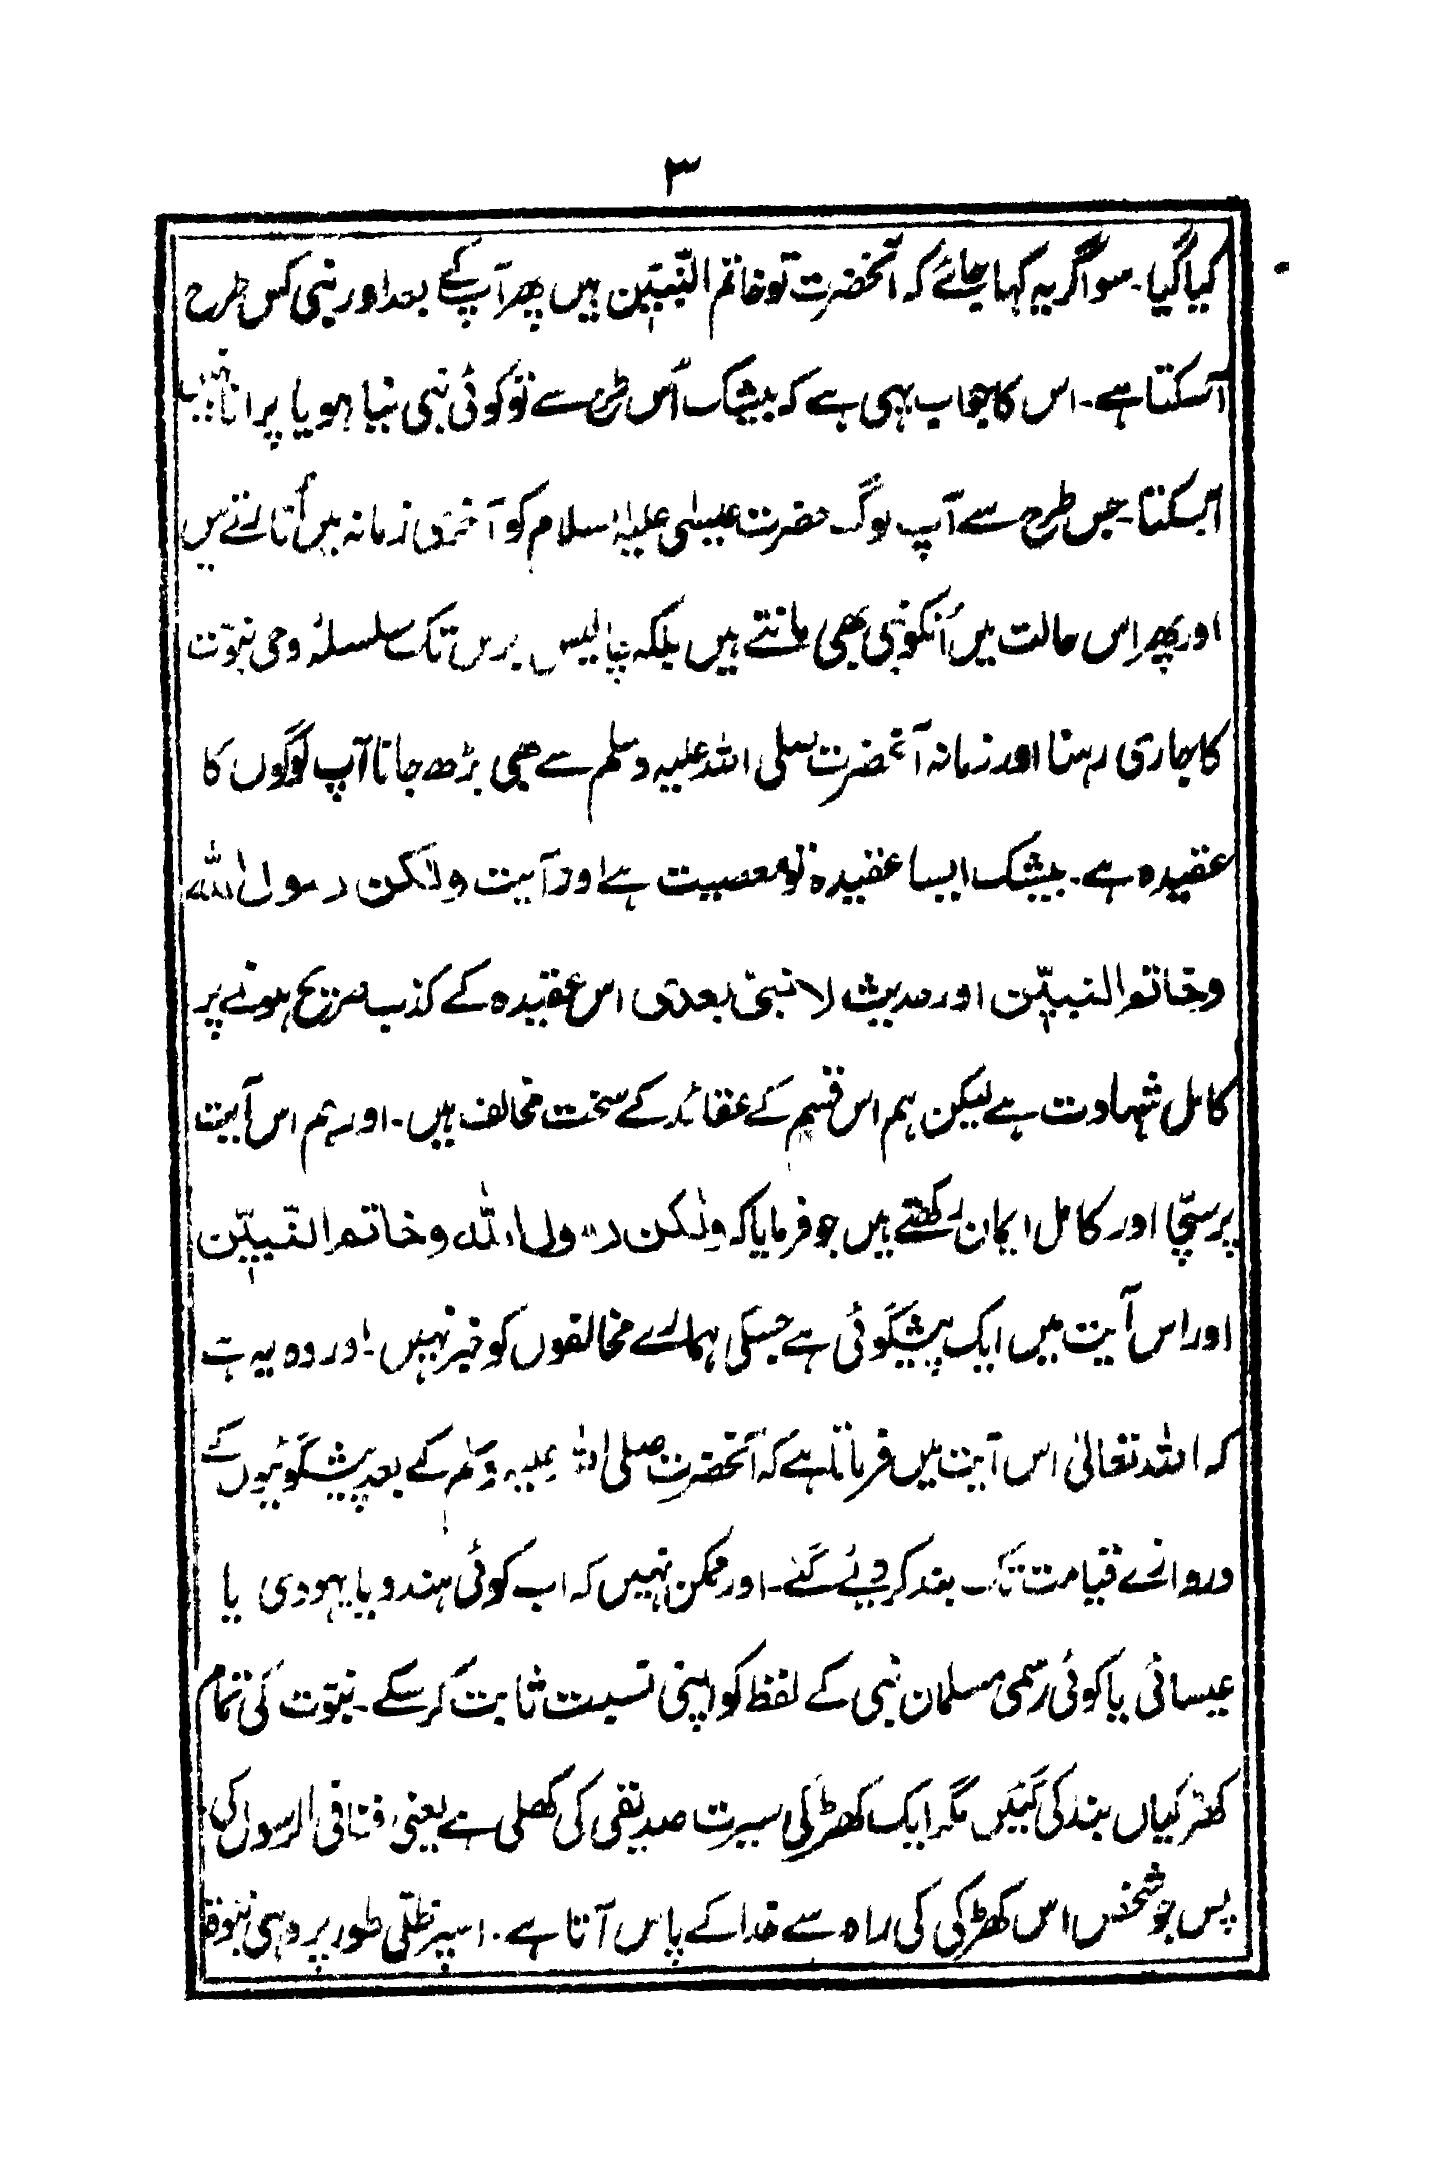 ۳
کیا گیا۔ سو اگر یہ کہا جائے کہ آنحضرت تو خاتم النّبیّین ہیں پھر آپ کے بعد اور نبی کس طرح
آسکتا ہے۔ اس کا جواب یہی ہے کہ بیشک اُس طرح سے تو کوئی نبی نیا ہو یا پرانا نہیں
آسکتا۔ جس طرح سے آپ لوگ حضرت عیسٰی علیہ السلام کو آخری زمانہ میں اُتارتے ہیں
اور پھر اِس حالت میں اُنکو نبی بھی مانتے ہیں بلکہ چالیس برس تک سلسلۂ وحی نبوّت
کا جاری رہنا اور زمانہ آنحضرت صلی اللہ علیہ وسلم سے بھی بڑھ جانا آپ لوگوں کا
عقیدہ ہے۔ بیشک ایسا عقیدہ تو معصیت ہے اور آیت ولٰکن رسول اللہ
وخاتم النبیّین اور حدیث لا نبیّ بعدی اس عقیدہ کے کذب صریح ہونے پر
کامل شہادت ہے لیکن ہم اس قسم کے عقائد کے سخت مخالف ہیں۔ اور ہم اس آیت
پر سچّا اور کامل ایمان رکھتے ہیں جو فرمایا کہ ولٰکن رسول اللہ وخاتم النّبیّین
اور اس آیت میں ایک پیشگوئی ہے جسکی ہمارے مخالفوں کو خبر نہیں۔ اور وہ یہ ہے
کہ اللہ تعالیٰ اس آیت میں فرماتا ہے کہ آنحضرت صلی اللہ علیہ وسلم کے بعد پیشگوئیوں کے
دروازے قیامت تک بند کر دیئے گئے۔ اور ممکن نہیں کہ اب کوئی ہندو یا یہودی یا
عیسائی یا کوئی رسمی مسلمان نبی کے لفظ کو اپنی نسبت ثابت کر سکے۔ نبوّت کی تمام
کھڑکیاں بند کی گئیں مگر ایک کھڑکی سیرت صدیقی کی کھلی ہے یعنی فنا فی الرسول کی
پس جو شخص اس کھڑکی کی راہ سے خدا کے پاس آتا ہے۔ اسپر ظلّی طور پر وہی نبوّۃ